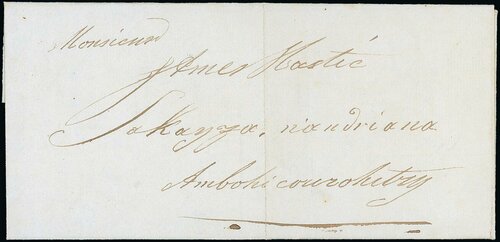 Monsieur
James Hastié
Sakayza, n'andriana
Ambohicourohitzy